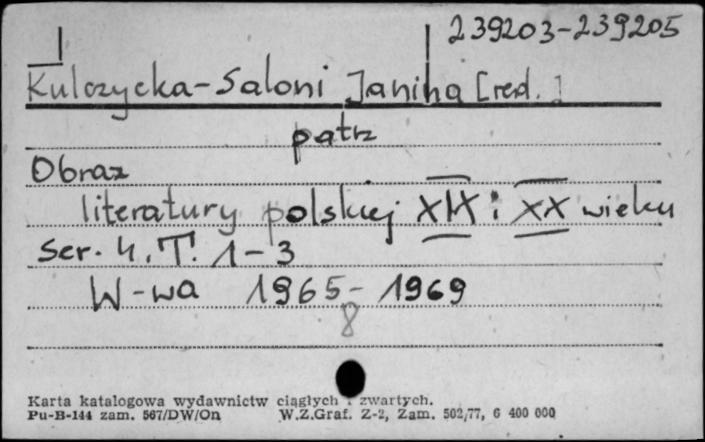 239203-239205
Kulczycka-Saloni Janina [red.]
patrz
Obraz
literatury polskiej XIX i XX wieku
Ser. 4. T. 1-3
W-wa 1965-1969
8
Karta katalogowa wydawnictw ciągłych i zwartych.
Pu-B-144 zam. 567/DW/On W.Z.Graf. Z-2, Zam. 502/77, 6 400 000